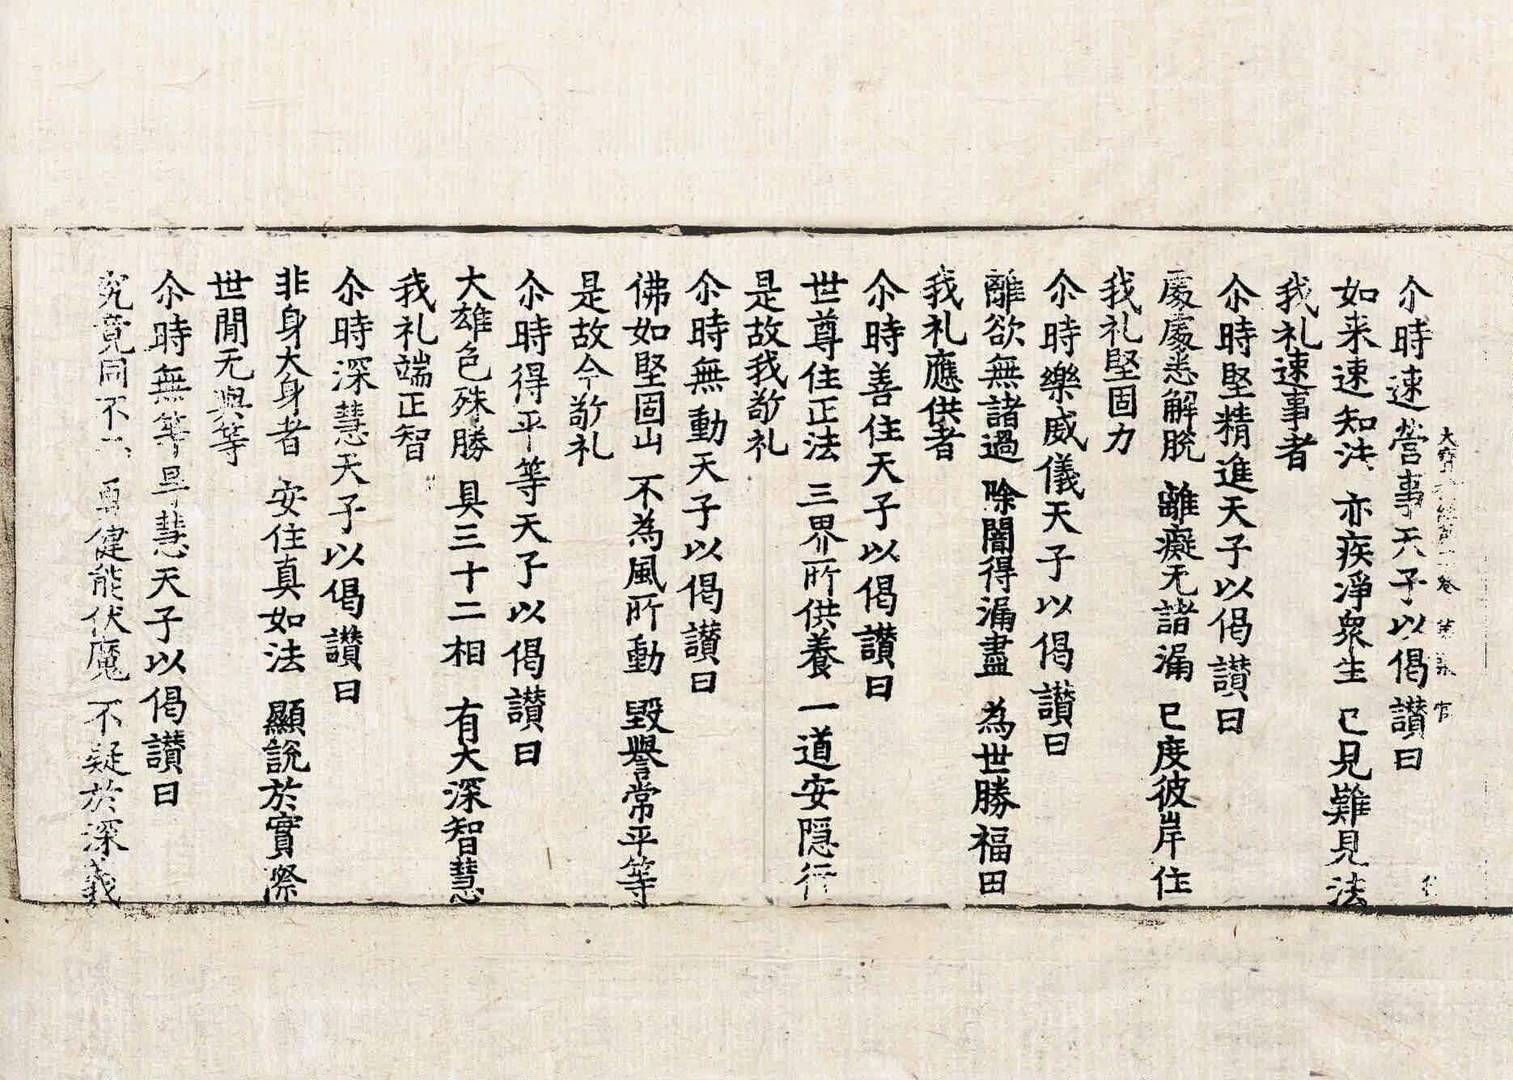 尒時速營事天子以偈讃曰
如来速知法 亦疾淨衆生 已見難見法
我礼速事者
尒時堅精進天子以偈讃曰
處處悉解脫 離癡无諸漏 已度彼岸住
我礼堅固力
尒時樂威儀天子以偈讃曰
離欲無諸過 除闇得漏盡 為世勝福田
我礼應供者
尒時善住天子以偈讃曰
世尊住正法 三界所供養 一道安隠行
是故我敬礼
尒時無動天子以偈讃曰
佛如堅固山 不為風所動 毀譽常平等
是故今敬礼
尒時得平等天子以偈讃曰
大雄色殊勝 具三十二相 有大深智慧
我礼端正智
尒時深慧天子以偈讃曰
非身大身者 安住真如法 顯說於實際
世間无與等
尒時無等等慧天子以偈讃曰
究竟同不二 勇健能伏魔 不疑於深義